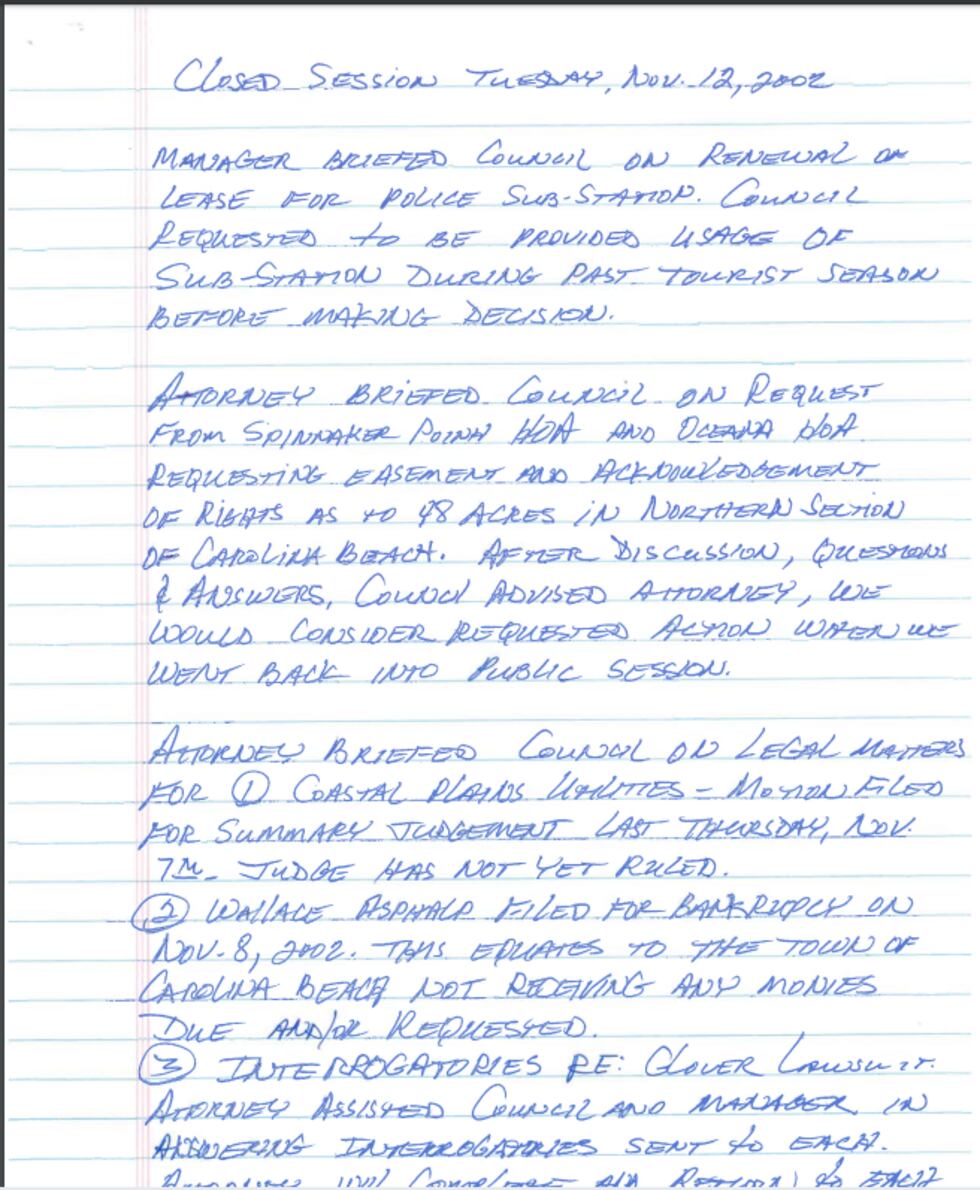 CLOSED SESSION TUESDAY, NOV. 12, 2002
MANAGER BRIEFED COUNCIL ON RENEWAL OF
LEASE FOR POLICE SUB-STATION. COUNCIL
REQUESTED TO BE PROVIDED USAGE OF
SUB-STATION DURING PAST TOURIST SEASON
BEFORE MAKING DECISION.
ATTORNEY BRIEFED COUNCIL ON REQUEST
FROM SPINNAKER POINT HOA AND OCEANA HOA
REQUESTING EASEMENT AND ACKNOWLEDGEMENT
OF RIGHTS AS TO 48 ACRES IN NORTHERN SECTION
OF CAROLINA BEACH. AFTER DISCUSSION, QUESTIONS
& ANSWERS, COUNCIL ADVISED ATTORNEY, WE
WOULD CONSIDER REQUESTED ACTION WHEN WE
WENT BACK INTO PUBLIC SESSION.
ATTORNEY BRIEFED COUNCIL ON LEGAL MATTERS
FOR ① COASTAL PLAINS UTILITIES - MOTION FILED
FOR SUMMARY JUDGEMENT LAST THURSDAY, NOV.
7TH. JUDGE HAS NOT YET RULED.
② WALLACE ASPHALT FILED FOR BANKRUPTCY ON
NOV. 8, 2002. THIS EQUATES TO THE TOWN OF
CAROLINA BEACH NOT RECEIVING ANY MONIES
DUE AND/OR REQUESTED.
③ INTERROGATORIES RE: GLOVER LAWSUIT.
ATTORNEY ASSISTED COUNCIL AND MANAGER IN
ANSWERING INTERROGATORIES SENT TO EACH.
ATTORNEY WILL COMPLETE AND RETURN TO EACH